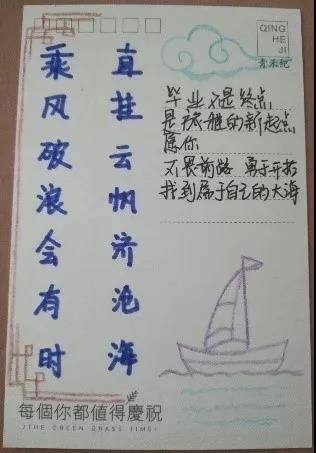 QING
HE
JI
青禾纪
乘风破浪会有时
直挂云帆济沧海
毕业不是终点
是的新起点
愿你
不畏前路 勇于开拓
找到属于自己的大海
每個你都值得慶祝
THE GREEN GRASS TIME